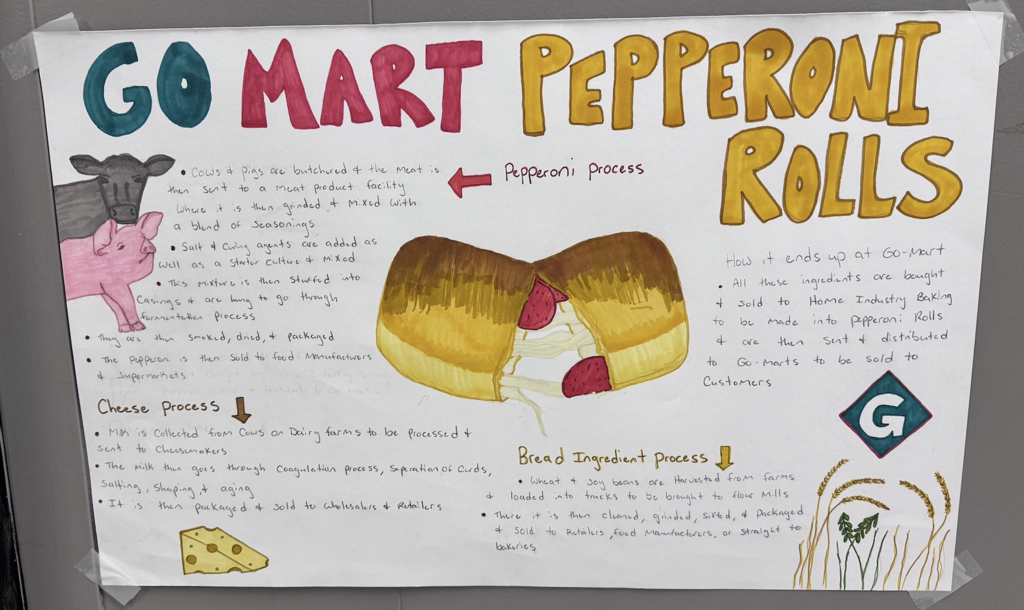 GO MART PEPPERONI
ROLLS
Pepperoni Process
• Cows & pigs are butchered & the meat is
then sent to a meat product facility
where it is then grinded & mixed with
a blend of seasonings
• Salt & curing agents are added as
well as a starter culture & mixed
• This mixture is then stuffed into
casings & are hung to go through
fermentation process
• They are then smoked, dried, & packaged
• The pepperoni is then sold to food manufacturers
& supermarkets
Cheese Process
• Milk is collected from cows on Dairy farms to be processed &
sent to cheesemakers
• The milk then goes through coagulation process, seperation of curds,
salting, shaping, & aging
• It is then packaged & sold to wholesalers & retailers
How it ends up at Go-Mart
• All these ingredients are bought
& sold to Home Industry Baking
to be made into pepperoni Rolls
& are then sent & distributed
to Go-Marts to be sold to
customers
G
Bread Ingredient Process
• Wheat & soy beans are harvested from farms
& loaded into trucks to be brought to flour mills
• There it is then cleaned, grinded, sifted, & packaged
& sold to retailers, food manufacturers, or straight to
bakeries